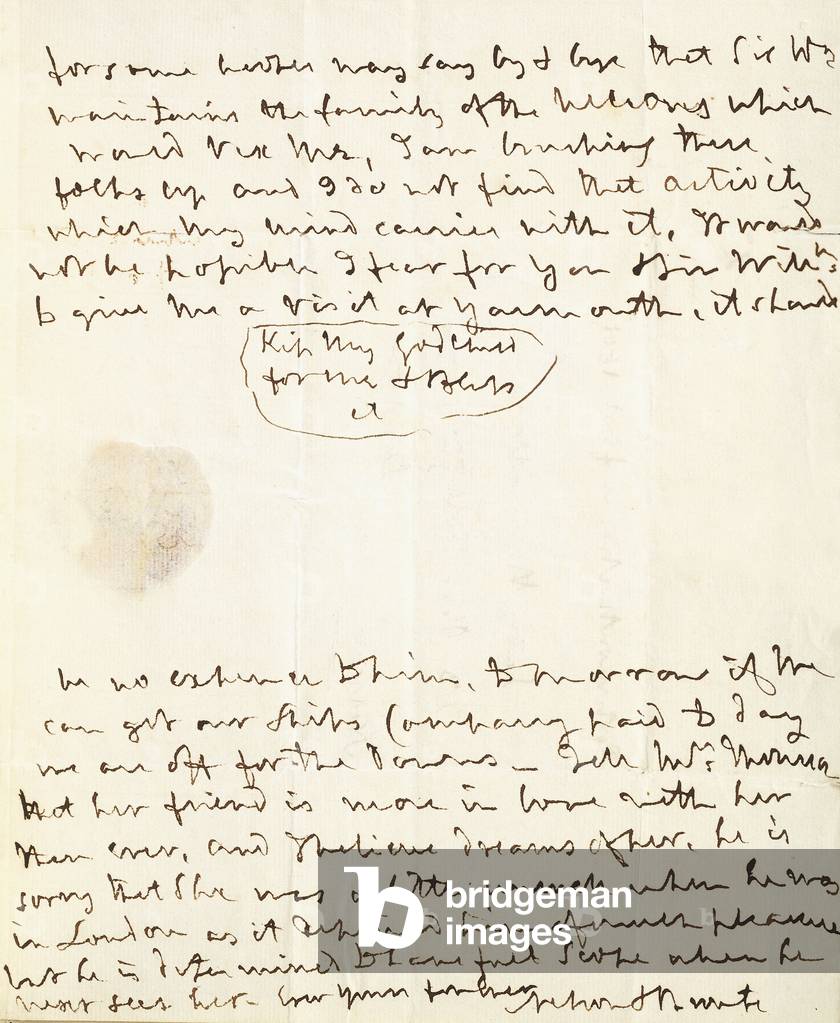 for some or other may say by & bye that Sir Wm
maintains the family of the Nelsons which
would vex me, I am brushing these
folks up and I do not find that activity
which my mind carries with it, It would
not be possible I fear for you & Sir Willm:
to give me a visit at Yarmouth, it should
Kiss My God Child
for me & Bless
it
be no expence to him, tomorrow if we
can get our Ships Company paid to day
we are off for the Downs - Tell Mrs: Thomson
that her friend is more in love with her
than ever, and I believe dreams of her, he is
sorry that She was a little when he was
in London as it deprived him of much pleasure
but he is determined to have full scope when he
next sees her - Ever yours for ever Nelson & Bronte
bridgeman
images